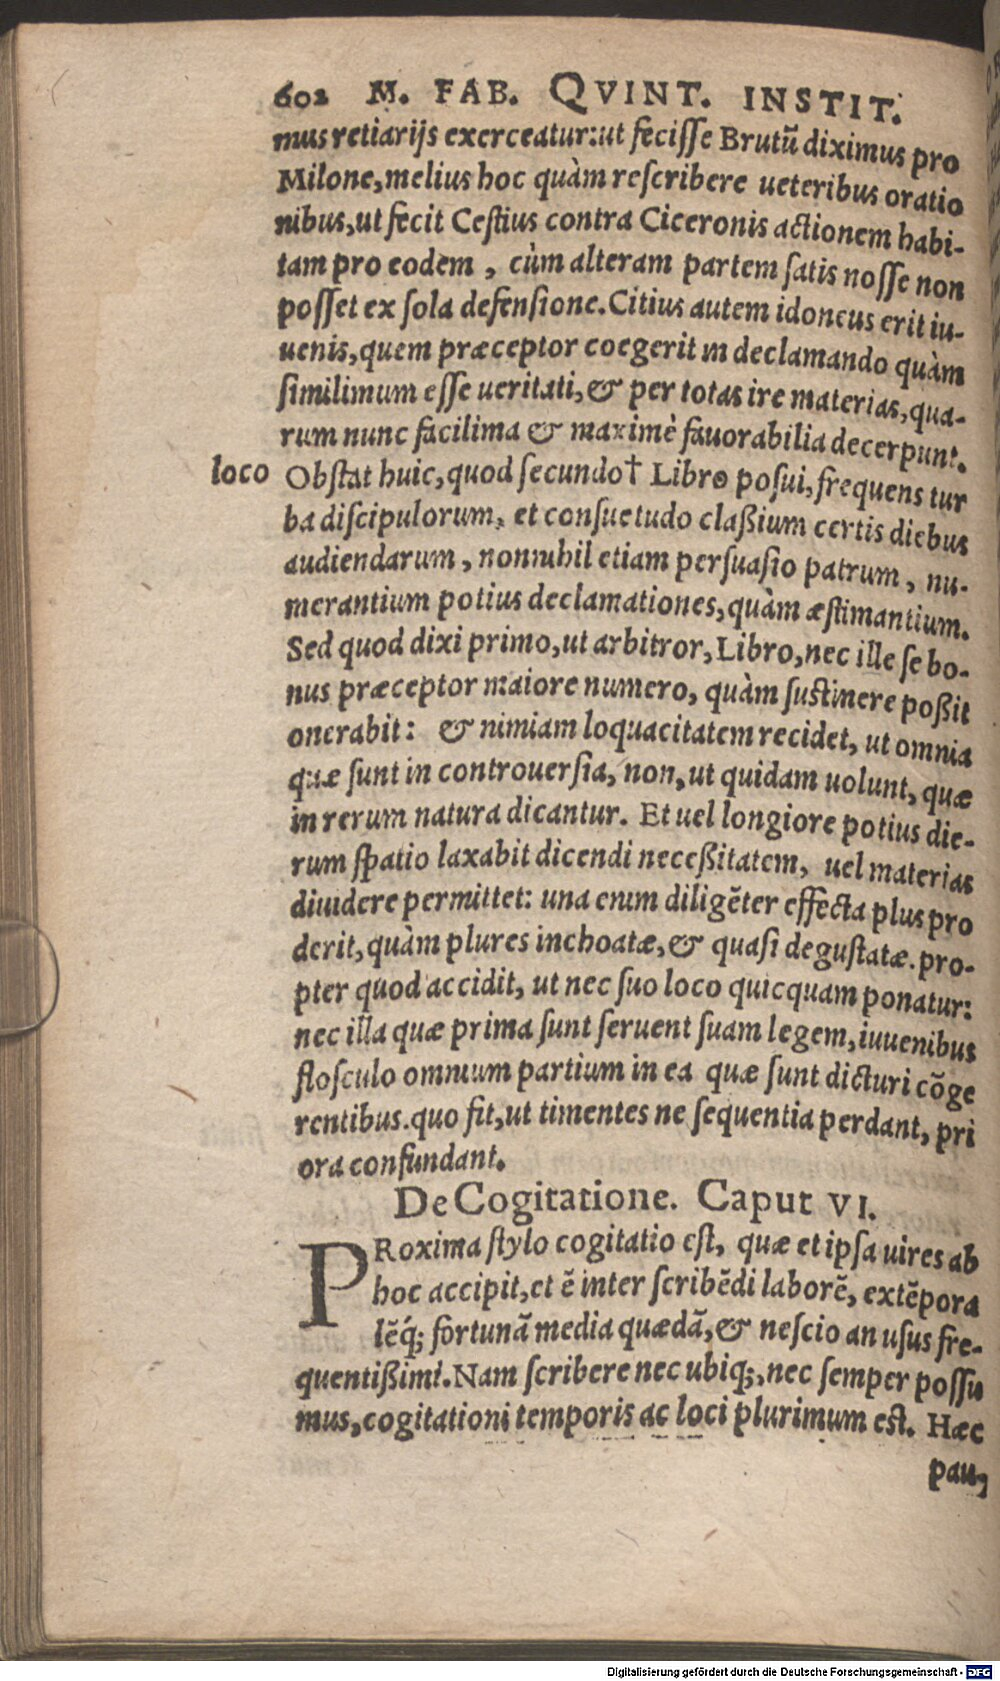 602 M. FAB. QVINT. INSTIT.
mus retiarijs exerceatur: ut fecisse Brutũ diximus pro
Milone, melius hoc quàm rescribere ueteribus oratio
nibus, ut fecit Cestius contra Ciceronis actionem habi-
tam pro eodem, cùm alteram partem satis nosse non
posset ex sola defensione. Citius autem idoneus erit iu-
uenis, quem præceptor coegerit in declamando quàm
simillimum esse ueritati, & per totas ire materias, qua-
rum nunc facilima & maximè fauorabilia decerpunt.
loco Obstat huic, quod secundo† Libro posui, frequens tur
ba discipulorum, et consuetudo claßium certis diebus
audiendarum, nonnihil etiam persuasio patrum, nu-
merantium potius declamationes, quàm æstimantium.
Sed quod dixi primo, ut arbitror, Libro, nec ille se bo-
nus præceptor maiore numero, quàm sustinere poßit
onerabit: & nimiam loquacitatem recidet, ut omnia
quæ sunt in controuersia, non, ut quidam uolunt, quæ
in rerum natura dicantur. Et uel longiore potius die-
rum spatio laxabit dicendi neceßitatem, uel materias
diuidere permittet: una enim diligẽter effecta plus pro
derit, quàm plures inchoatæ, & quasi degustatæ. pro-
pter quod accidit, ut nec suo loco quicquam ponatur:
nec illa quæ prima sunt seruent suam legem, iuuenibus
flosculo omnium partium in ea quæ sunt dicturi cõge
rentibus. quo fit, ut timentes ne sequentia perdant, pri
ora confundant.
De Cogitatione. Caput VI.
PRoxima stylo cogitatio est, quæ et ipsa uires ab
hoc accipit, et ẽ inter scribẽdi laborẽ, extẽpora
lẽq́; fortunã media quædã, & nescio an usus fre-
quentißimi. Nam scribere nec ubiq;, nec semper possu
mus, cogitationi temporis ac loci plurimum est. Hæc
pau,
Digitalisierung gefördert durch die Deutsche Forschungsgemeinschaft - DFG